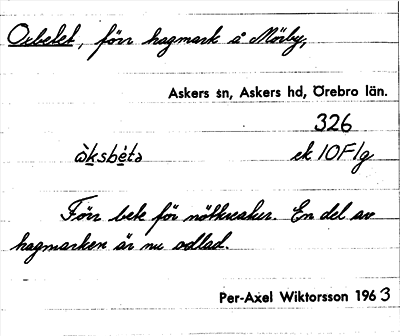 Oxbetet, förr hagmark å Mörby,
Askers sn, Askers hd, Örebro län.
326
ek 10F1g
Förr bete för nötkreatur. En del av
hagmarken är nu odlad.
Per-Axel Wiktorsson 1963